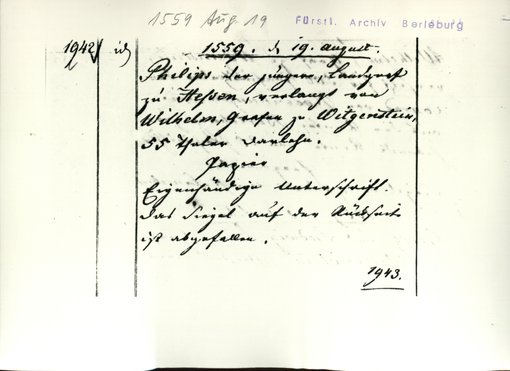 1559 Aug 19
Fürstl. Archiv Berleburg
1942 id 1559. d 19. August.
Philips der jüngere, Landgraf
zu Hessen, verlangt von
Wilhelm, Grafen zu Witgenstein,
55 Thaler Darlehn.
Papier
Eigenhändige Unterschrift
Das Siegel auf der Rückseite
ist abgefallen.
1943.